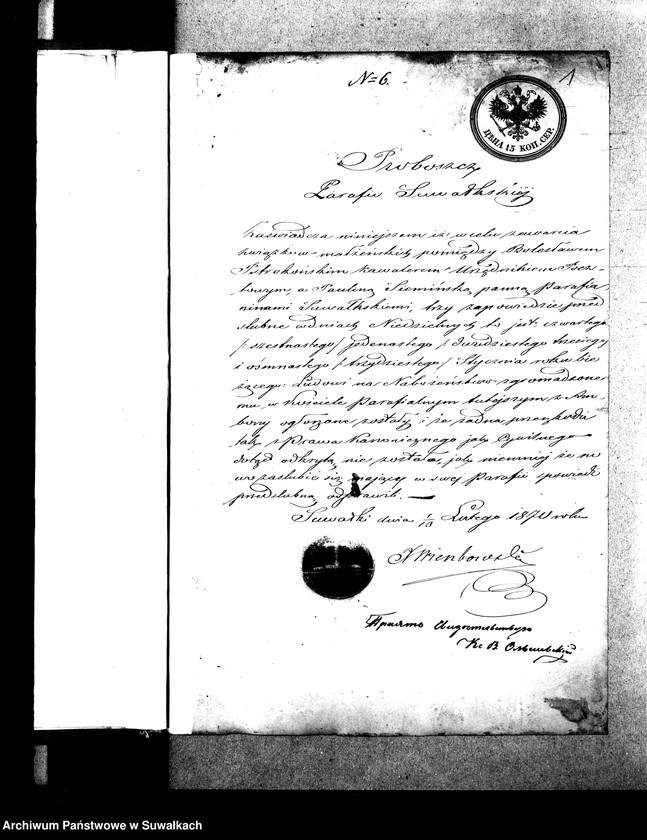 № 6.
1
ЦѢНА 15 КОП. СЕР.
Proboszcz
Parafii Suwałkskiéj
Zaświadcza niniejszem iż w celu zawarcia
związków małżeńskich pomiędzy Bolesławem
Piotrkońskim kawalerem Urzędnikiem Pocz-
towym, a Pauliną Siemińską panną Parafia-
ninami Suwałkskiemi, trzy zapowiedzie przed
ślubne w dniach Niedzielnych to jest: czwartego
/szesnastego/ jedenastego /dwudziestego trzeciego/
i ośmnastego /trzydziestego/ Stycznia roku bie
żącego Ludowi na Nabożeństwo zgromadzone
mu, w Kościele Parafialnym tutejszym z Am-
bony ogłoszone zostały i że żadna przeszkoda
tak z Prawa Kanonicznego jak Cywilnego
dotąd odkrytą nie została, jak niemniéj że no
wo zaślubić się mający w swéj Parafii spowiedź
przedślubną odprawili.
Suwałki dnia 1/13 Lutego 1870 roku
Кс. В.
Archiwum Państwowe w Suwałkach